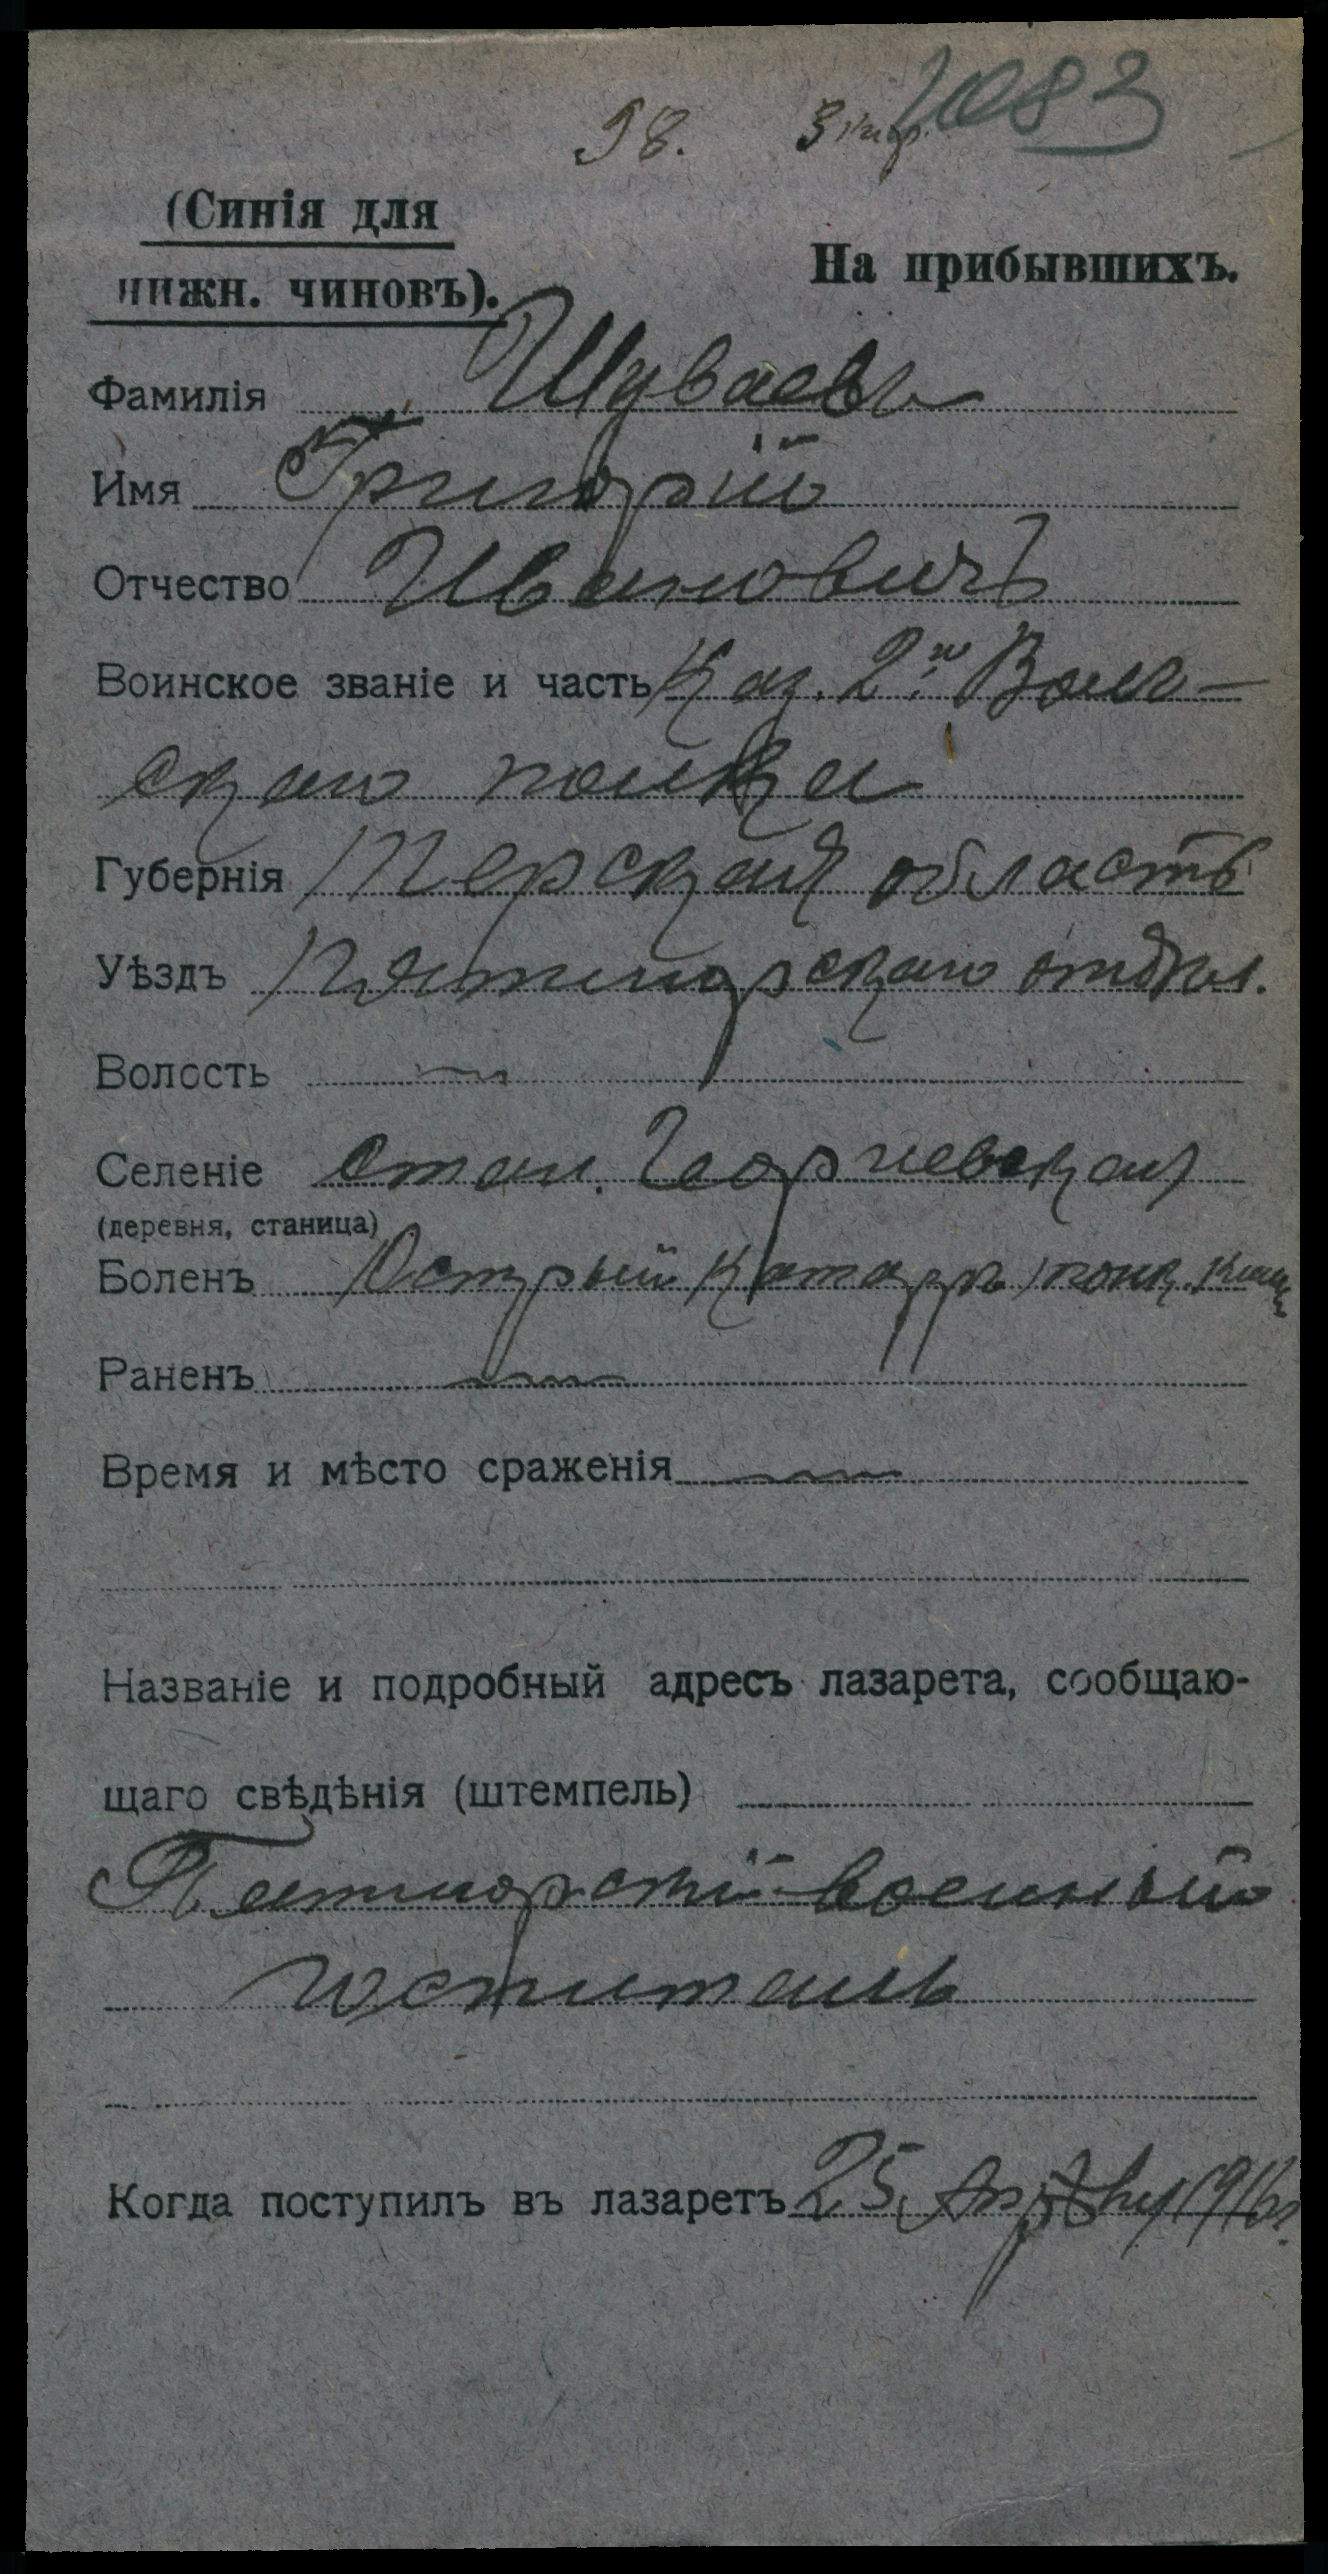 2083
98. 3
(Синія для
нижн. чиновъ).
На прибывшихъ.
Фамилія Шуваевъ
Имя Григорій
Отчество Ивановичъ
Воинское званіе и часть Каз. 2го Волг-
скаго полка
Губернія Терская область
Уѣздъ Пятигорскаго отдѣл.
Волость
Селеніе Стан. Георгиевская
(деревня, станица)
Боленъ Острый катарръ тонк. киш
Раненъ
Время и мѣсто сраженія
Названіе и подробный адресъ лазарета, сообщаю-
щаго свѣдѣнія (штемпель)
Пятигорскій военный
госпиталь
Когда поступилъ въ лазаретъ 25 Апрѣля 1916г.